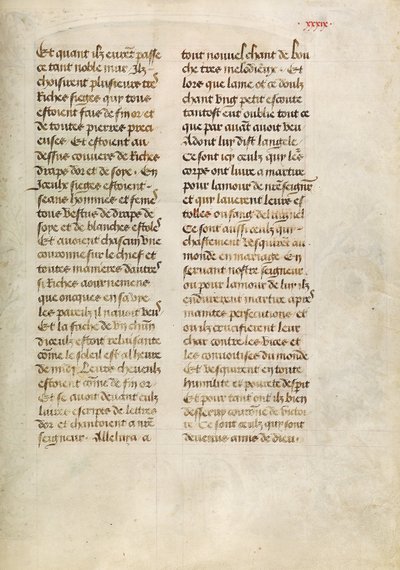 xxxix.
Et quant ilz eurent passe
ce tant noble mur. Ilz
choisirent plusieurs tres
Riches sieges quy tous
estoient fais de fin or et
de toutes pierres preci
euses. Et estoient au
dessus couvers de Riches
draps dor et de soye. En
Jceulx sieges estoient
seans hommes et femes
tous vestus de draps de
soye et de blanches estoles
Et avoient chascun vne
couronne sur le chief et
toutes manieres dautres
si Riches aournemens
que oncques en sa vye
les pareilz il navoit veu
Et la fache de vng chascun
diceulx estoit reluisante
come le soleil est al heure
de midi. Leurs cheveulz
estoient come de fin or
Et se avoit devant eulz
livres escrips de lettres
dor et chantoient a nre
seigneur. Alleluya a
tout nouvel chant de bou
che tres melodieux. Et
lors que lame et ce doulz
chant vng petit escoute
tantost eut oublie tout ce
que par avant avoit veu
Adont luy dist langele
Ce sont icy ceulz quy les
corps ont livre a martire
pour lamour de nre seignr
et quy laverent leurs es
tolles ou sang de laignel
Ce sont aussi ceulz quy
chastement vesquirent au
monde en mariage. En
servant nostre seigneur.
ou pour lamour de luy ilz
endurerent martire apres
maintes persecutions et
ou ilz crucifierent leur
char contre les vices et
les convoitises du monde
Et vesquirent en toute
humilite et povrete desperit
Et pour tant ont ilz bien
desservy couronne de victoi
re. Ce sont ceulz quy sont
devenus amis de dieu.